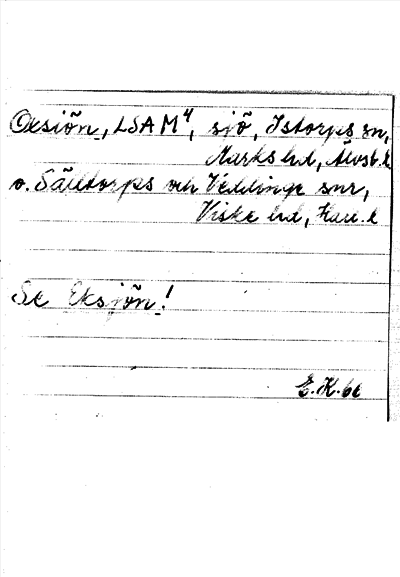 Oxsiön, LSA M⁴, sjö, Istorps sn,
Marks hd, Älvsb. l.
o. Sälltorps och Veddinge snr,
Viske hd, Hall. l
Se Eksjön!
E.K. 66